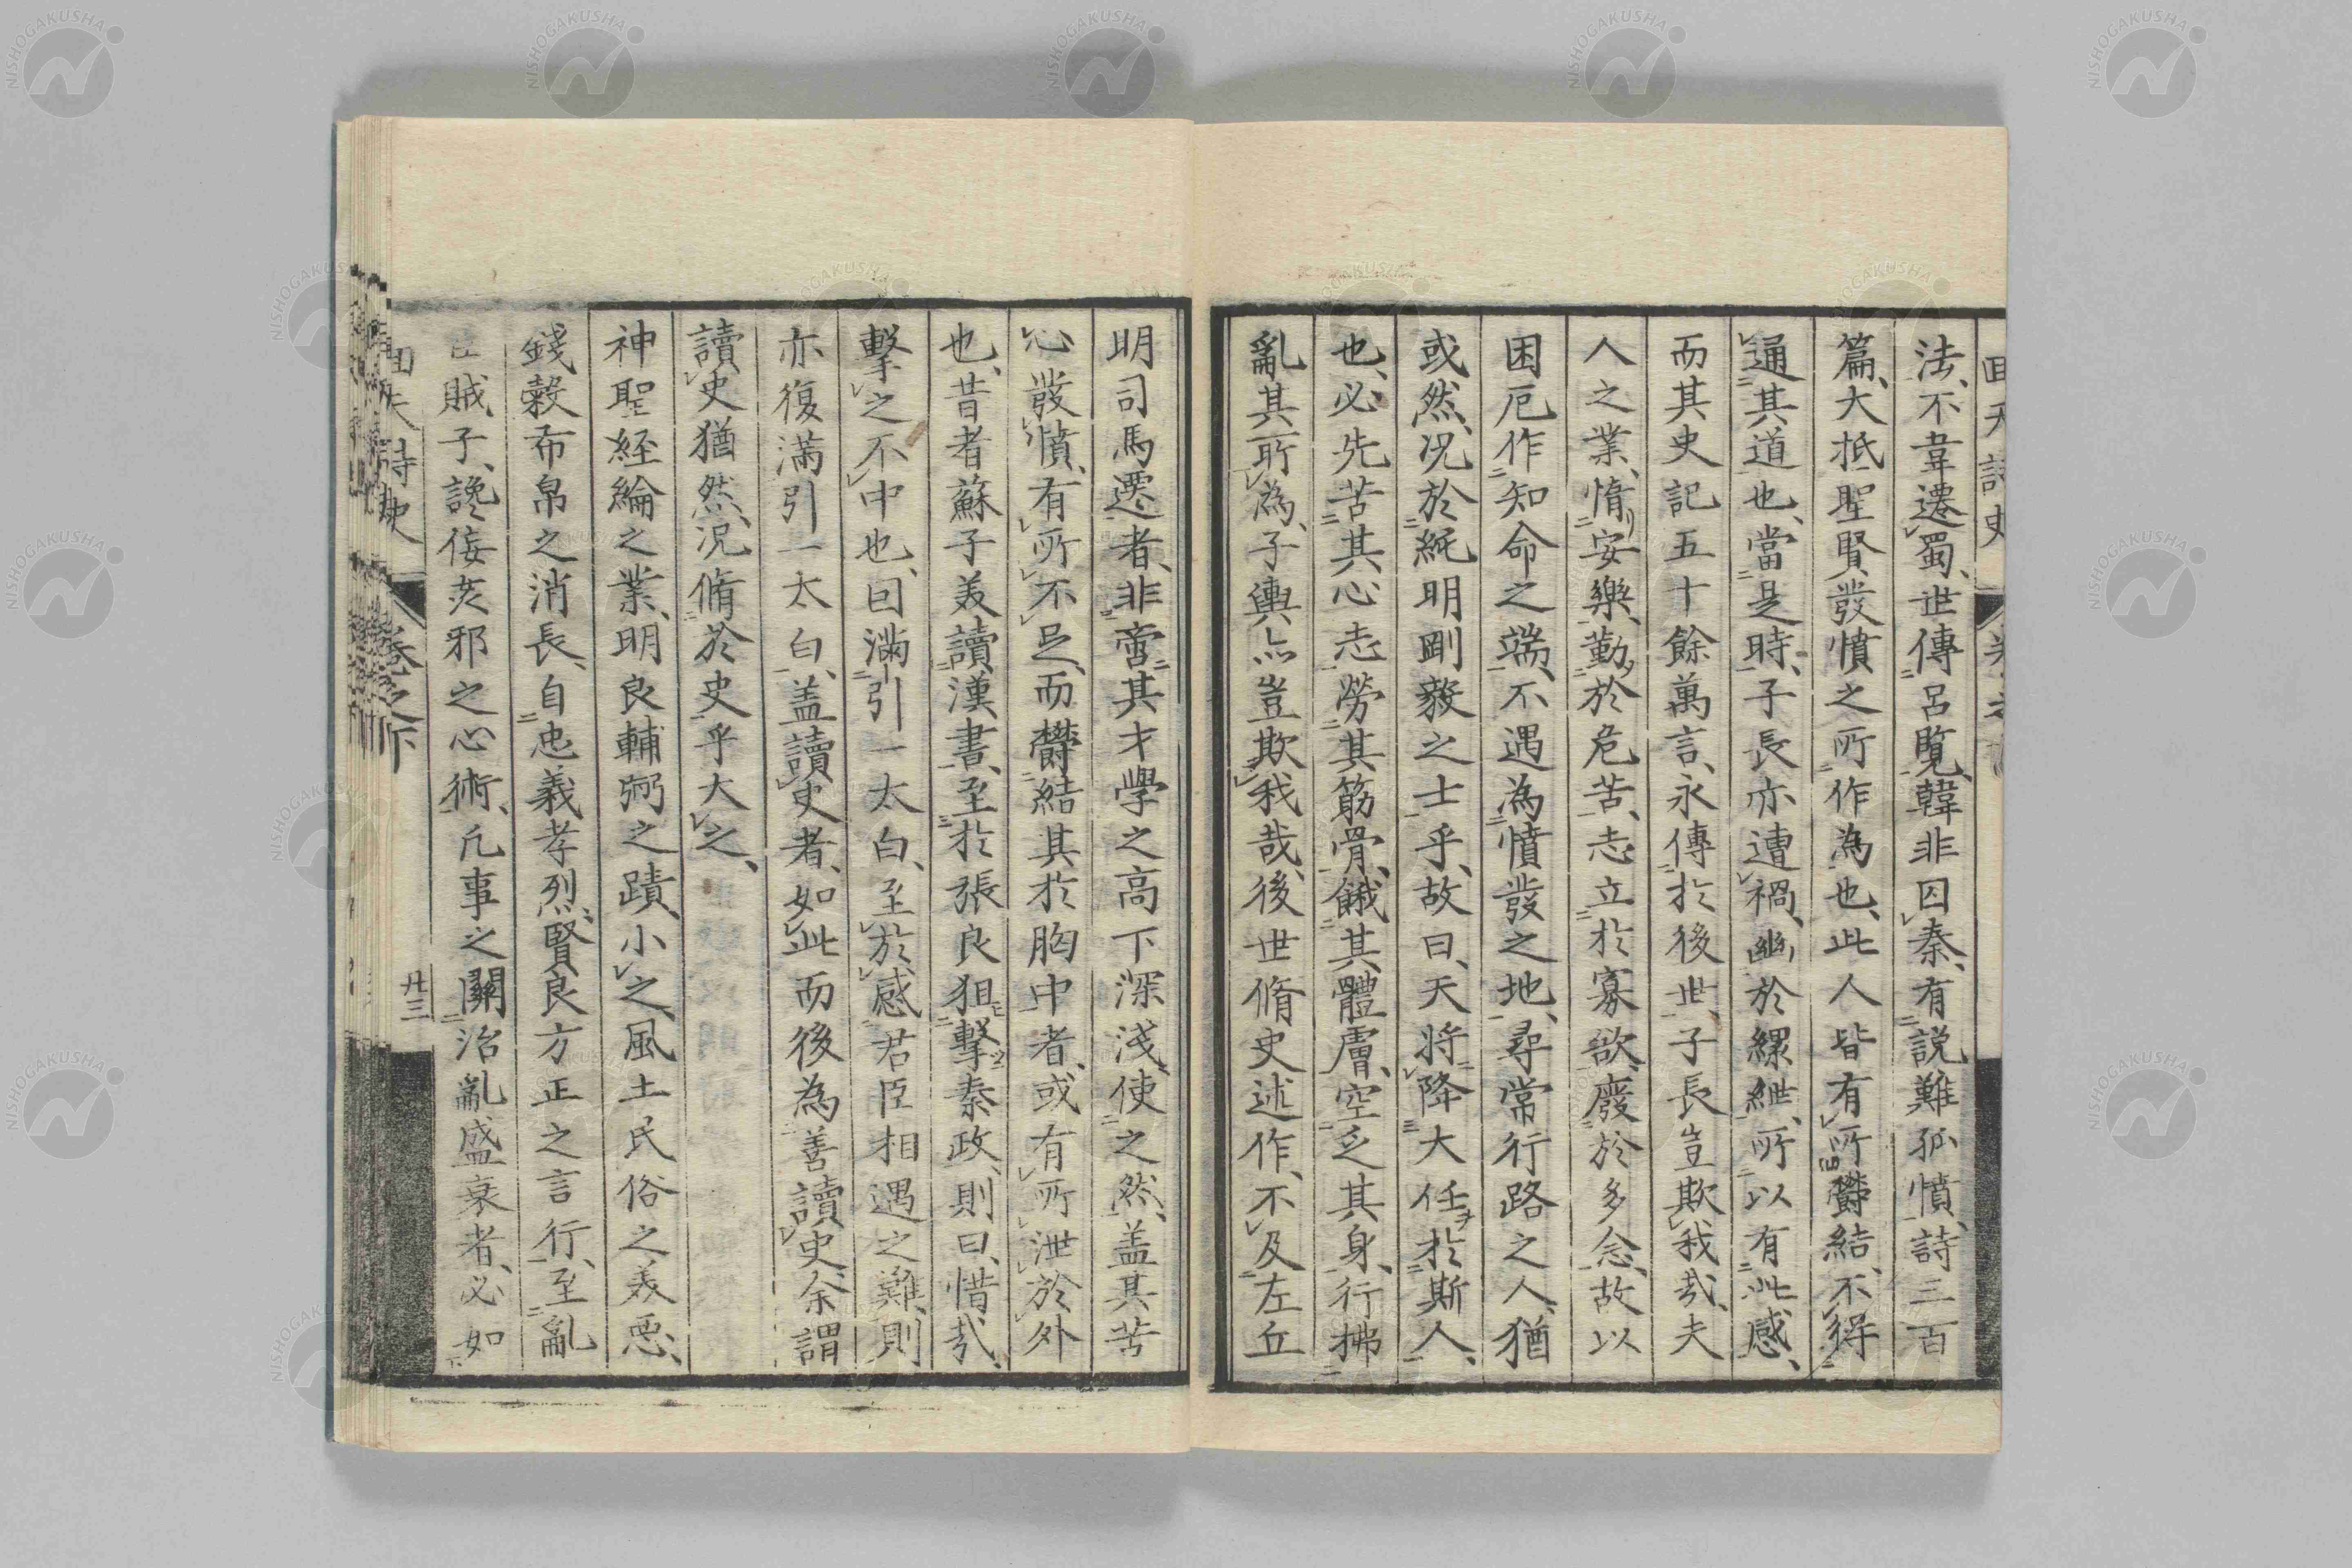 法、不韋遷蜀、世傳呂覧、韓非囚秦、有説難孤憤、詩三百
篇、大抵聖賢發憤之所作為也、此人皆有所欝結、不得
通其道也、當是時、子長亦遭禍、幽於縲紲、所以有此感、
而其史記五十餘萬言、永傳於後世、子長豈欺我哉、夫
人之業、惰安樂、勤於危苦、志立於寡欲、廢於多念、故以
困厄作知命之端、不遇為憤發之地、尋常行路之人、猶
或然、况於純明剛毅之士乎、故曰、天将降大任於斯人
也、必先苦其心志、勞其筋骨、餓其體膚、空乏其身、行拂
亂其所為、子輿亦豈欺我哉、後世脩史述作、不及左丘
明司馬遷者、非啻其才學之高下深淺、使之然、盖其苦
心發憤、有所不足、而欝結其於胸中者、或有所泄於外
也、昔者蘇子美讀漢書、至於張良狙擊秦政、則曰、惜哉、
擊之不中也、回滿引一太白、至於感君臣相遇之難、則
亦復滿引一太白、盖讀史者、如此而後為善讀史、余謂
讀史猶然、况脩於史乎、大之、
神聖経綸之業、明良輔弼之蹟、小之、風土民俗之美悪、
錢穀布帛之消長、自忠義孝烈、賢良方正之言行、至亂
臣賊子、讒侫姦邪之心術、凡事之關治亂盛衰者、必如
回天詩史
巻之下
廿三